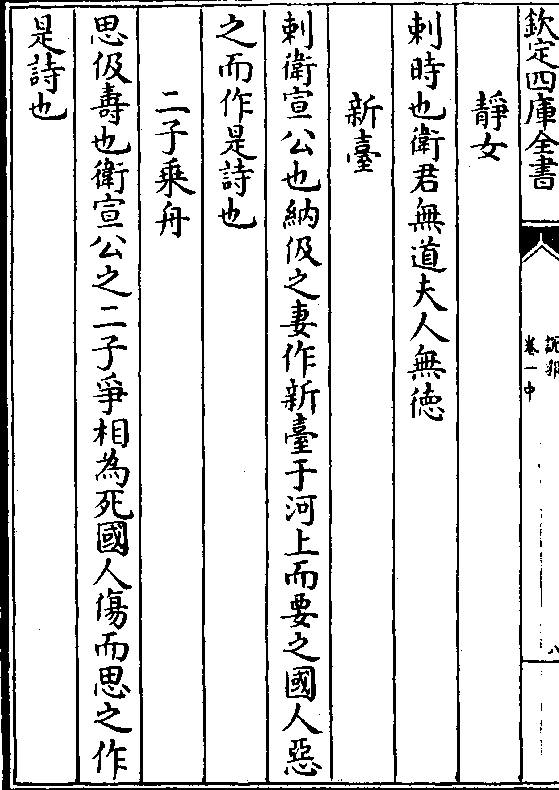 欽定四庫全書
說郛
卷一中
八
靜女
刺時也衛君無道夫人無徳
新臺
刺衛宣公也納伋之妻作新臺于河上而要之國人惡
之而作是詩也
二子乗舟
思伋壽也衛宣公之二子爭相為死國人傷而思之作
是詩也